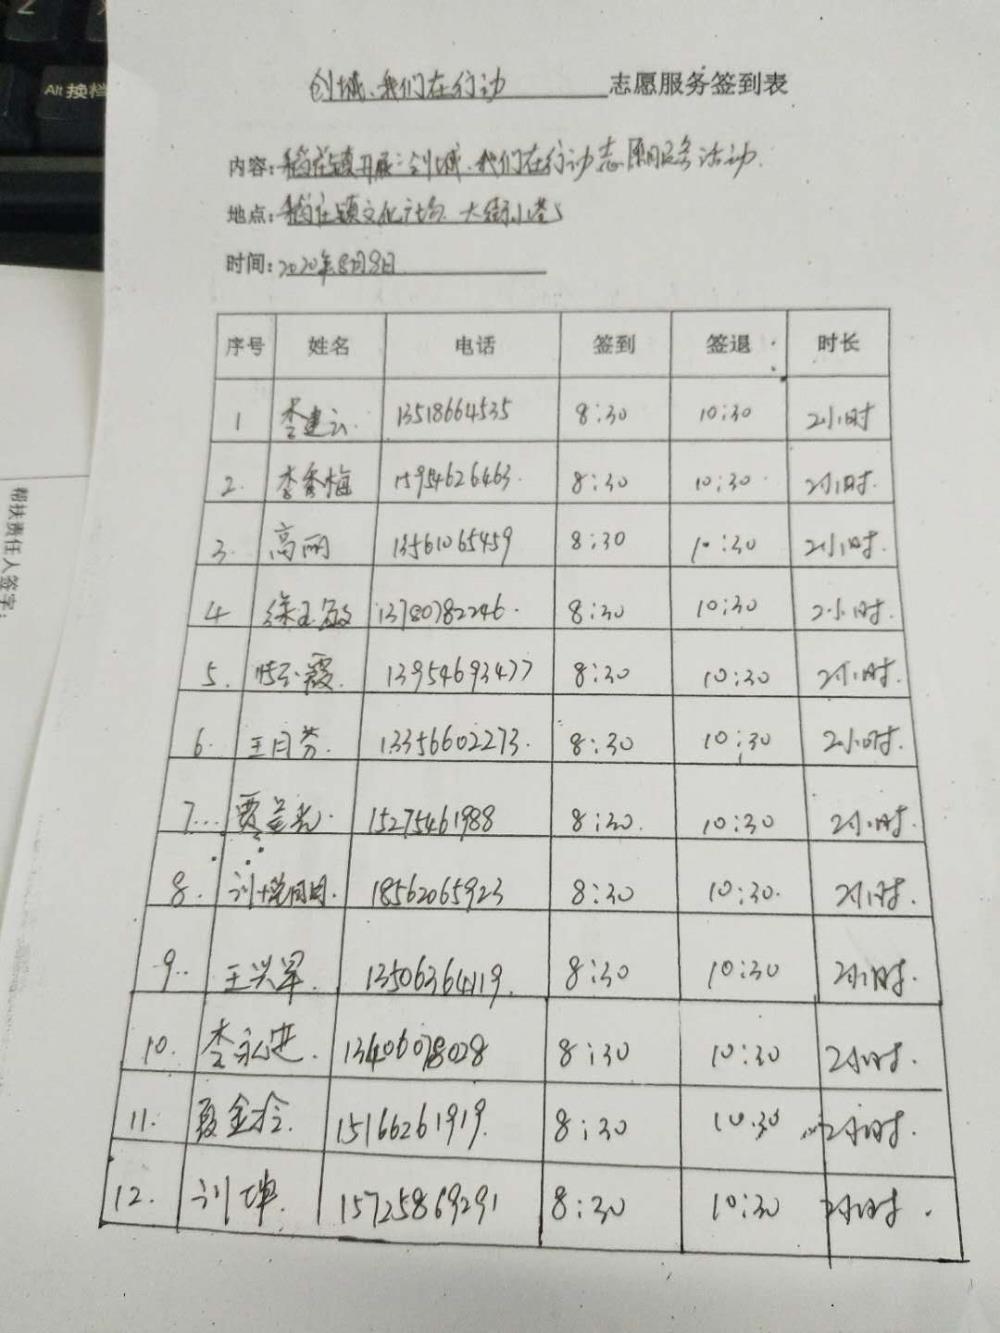 Alt 换档
创城、我们在行动 志愿服务签到表
内容: 稻庄镇开展:创城、我们在行动志愿服务活动.
地点: 稻庄镇文化广场 大街小巷
时间: 2020年8月8日
序号 姓名 电话 签到 签退 时长
1 李建云. 13518664535 8:30 10:30 2小时
2. 李秀梅 15954626463. 8:30 10:30. 2小时.
3. 高丽 13561065459 8:30 10:30 2小时.
4 徐玉敏 13780782246. 8:30 10:30 2小时.
5. 霞. 13954693477 8:30 10:30 2小时.
6. 王月芳. 13356602273. 8:30 10:30 2小时.
7... 15275461988 8:30. 10:30 2小时.
8. 刘 18562065923 8:30 10:30. 2小时.
9.. 王兴军. 13506364119. 8:30 10:30 2小时.
10. 李永进. 13406078028 8:30 10:30 2小时.
11. 聂金玲. 15166261919. 8:30 10:30 2小时.
12. 刘坤. 15725869291 8:30 10:30 2小时.
帮扶责任人签字: